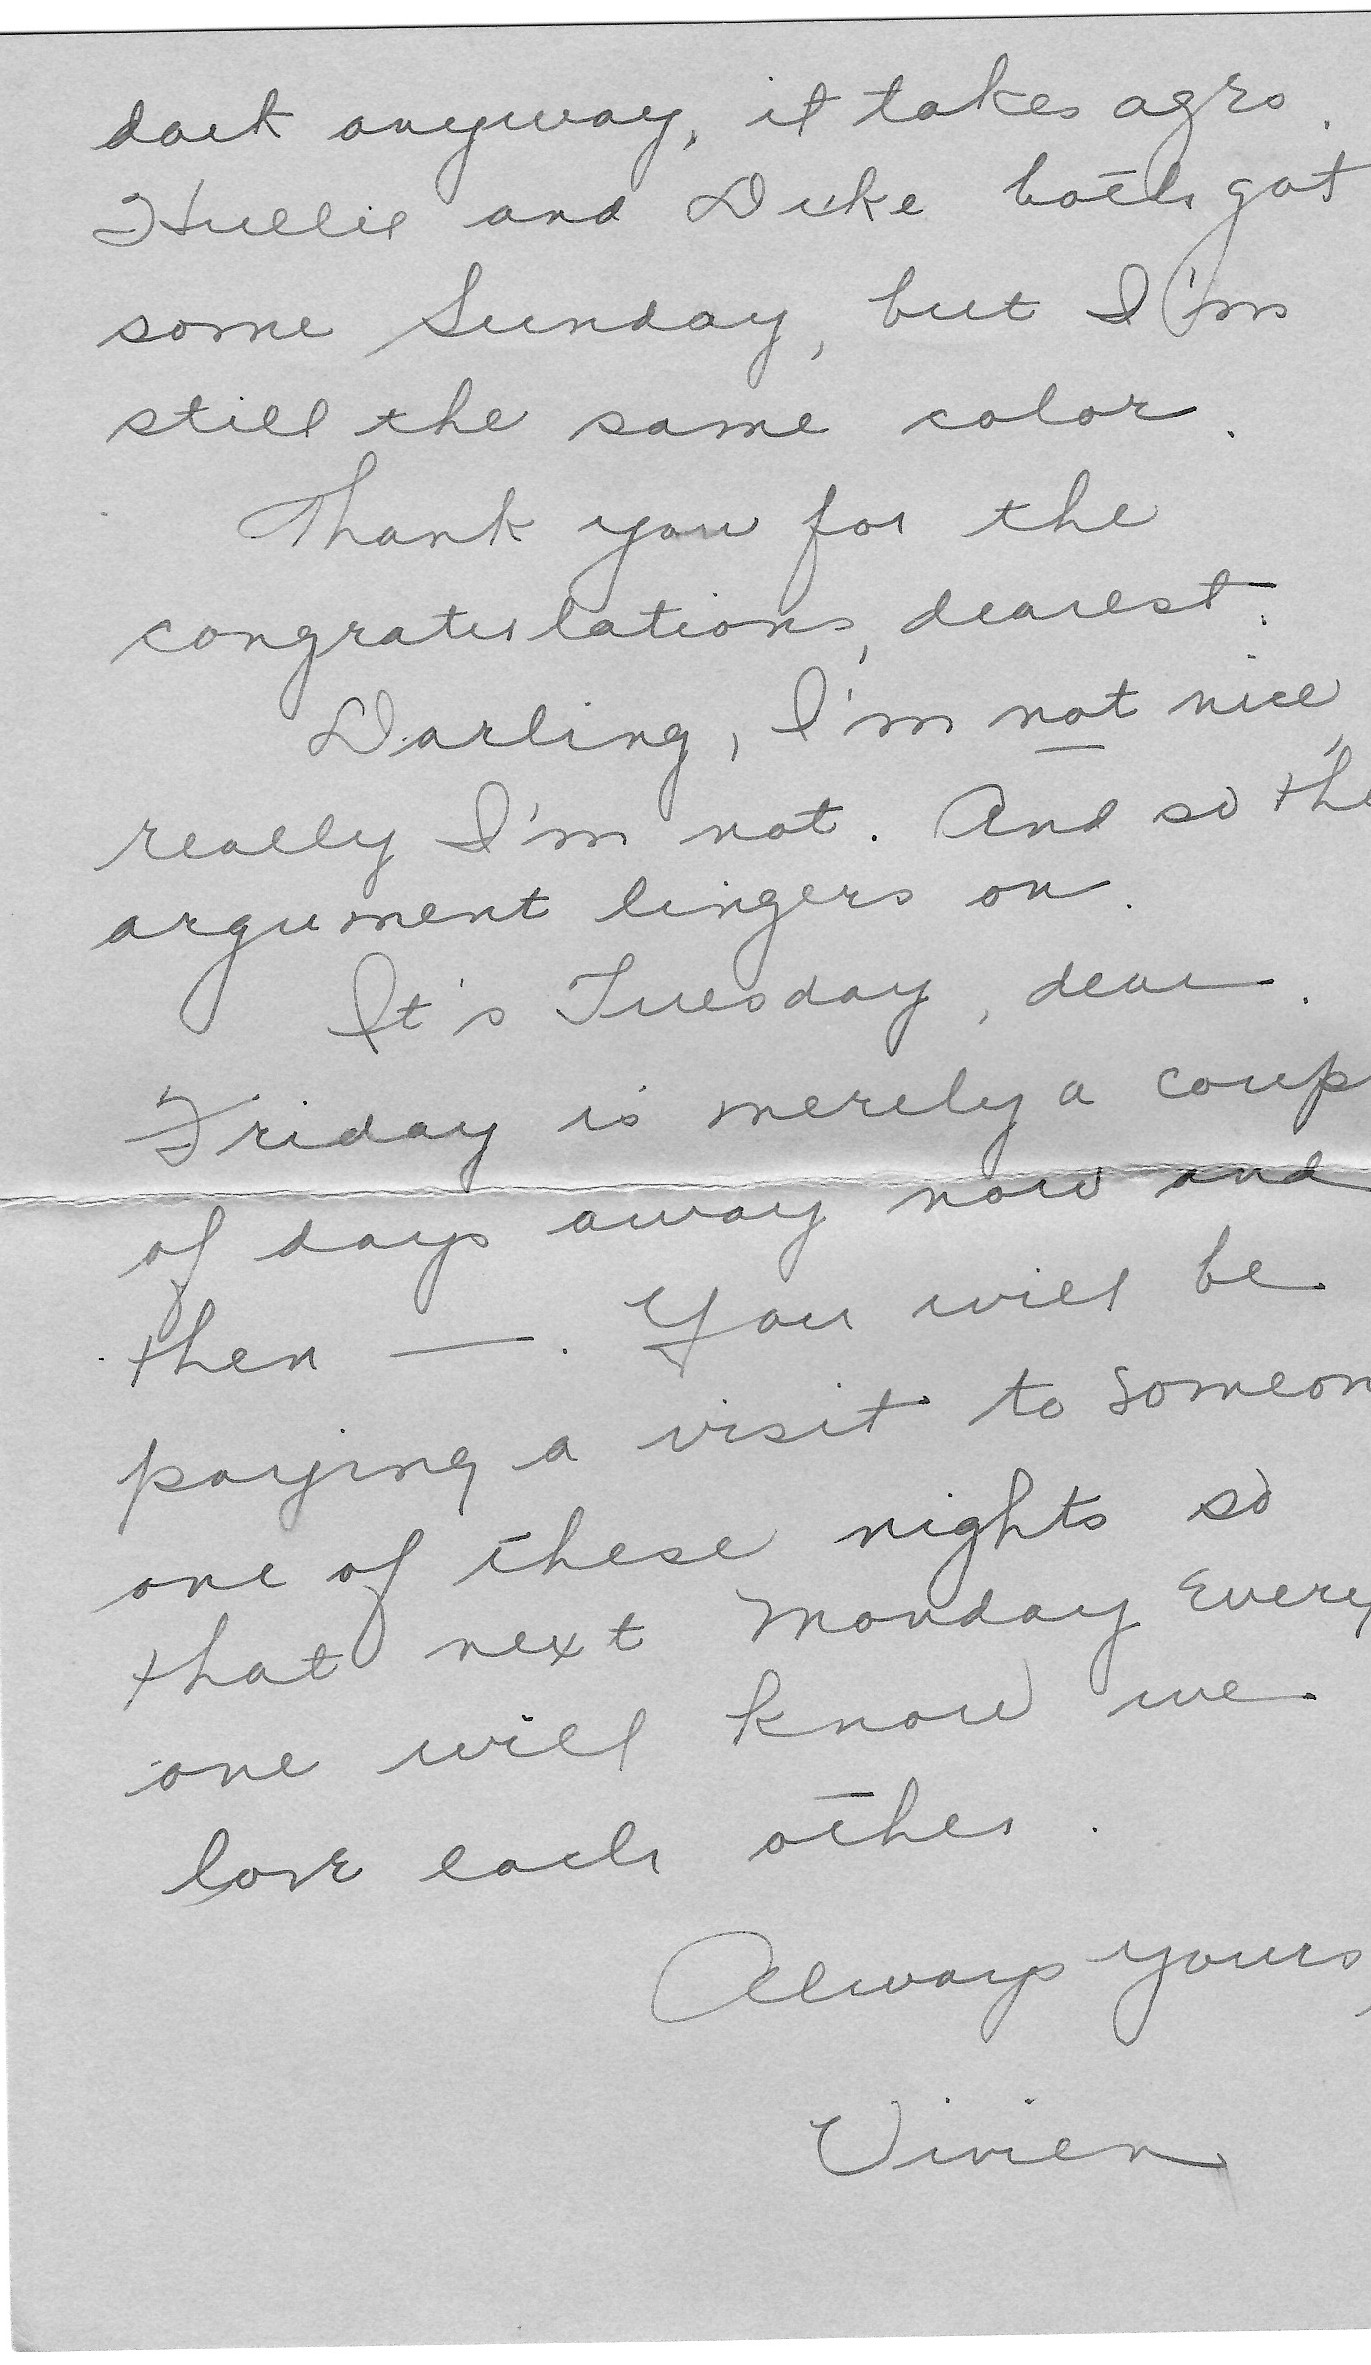 dark anyway, it takes ages.
Hullie and Duke both got
some Sunday, but I'm
still the same color.
Thank you for the
congratulations, dearest.
Darling, I'm not nice,
really I'm not. And so the
argument lingers on.
It's Tuesday, dear.
Friday is merely a coup
of days away now and
then —. You will be
paying a visit to someon
one of these nights so
that next Monday every
one will know we
love each other.
Always yours,
Vivien